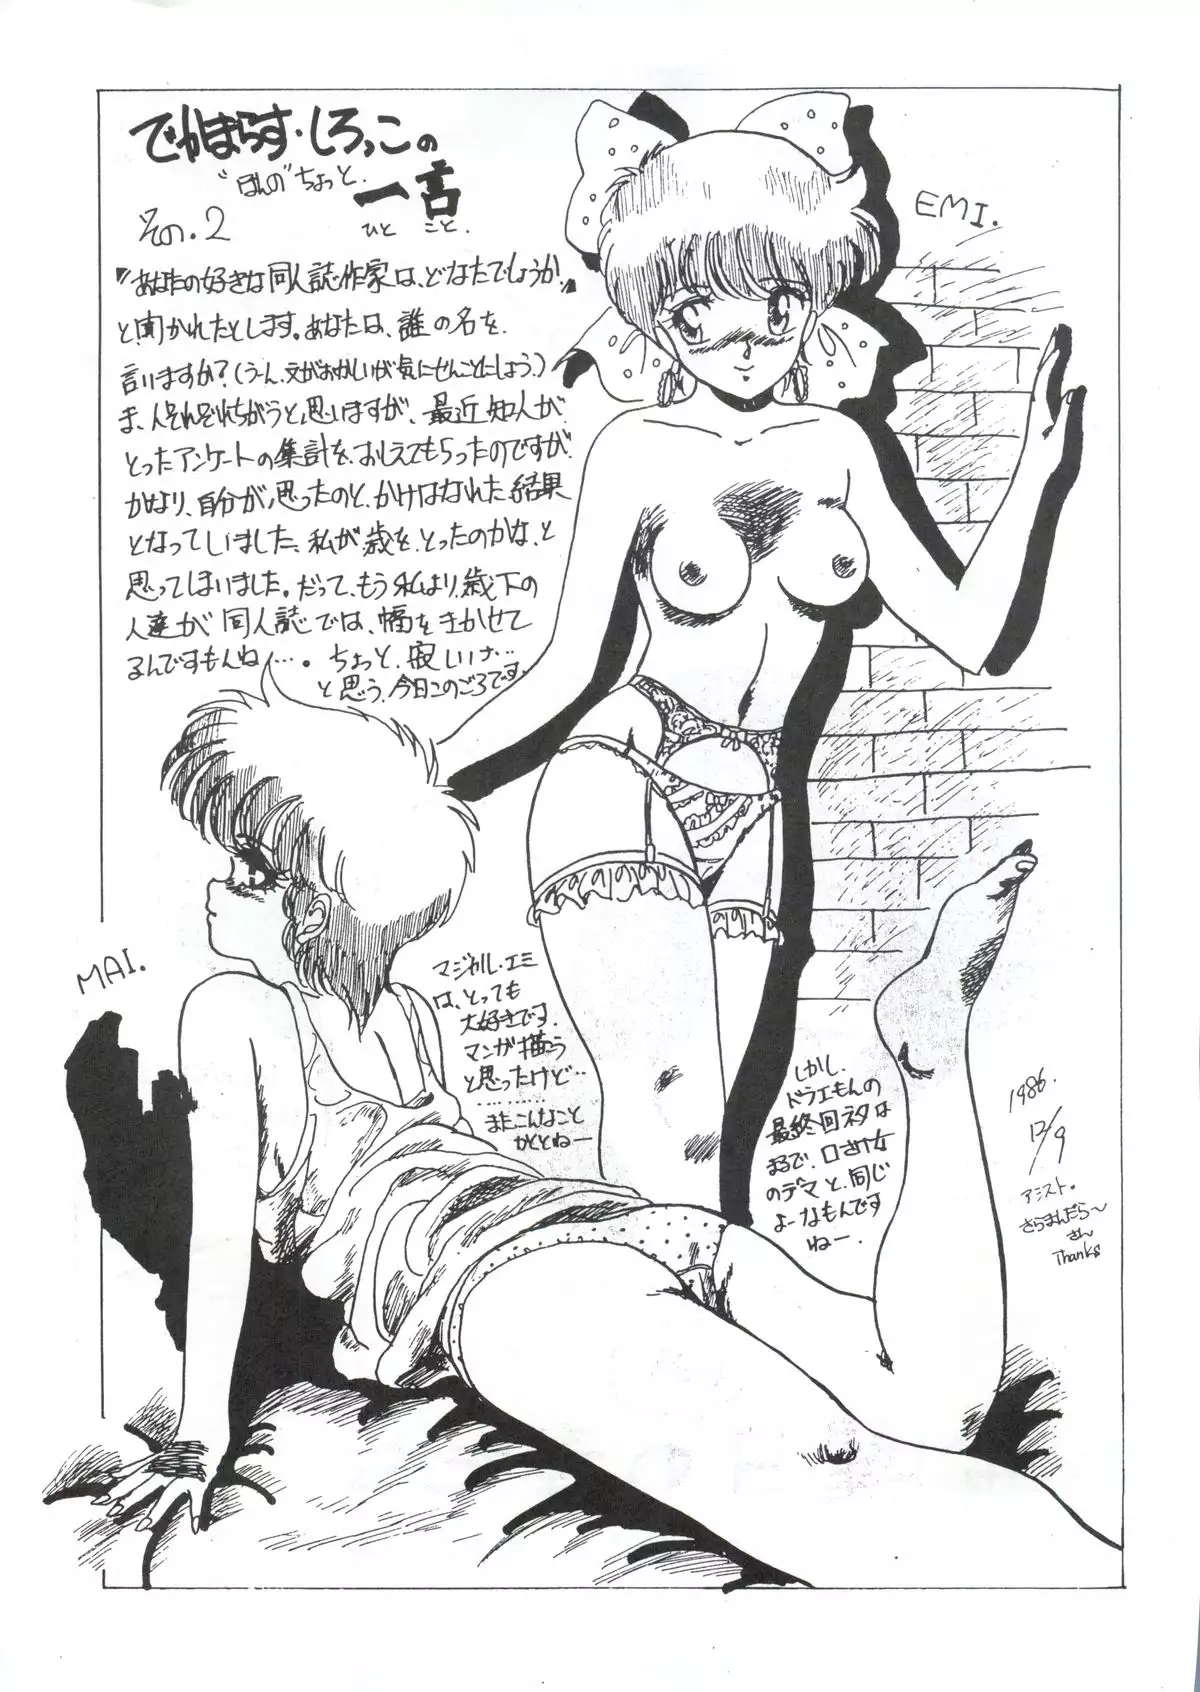 でかまらす・しろっこの
"ほんの"ちょっと.
一言
ひと こと.
その.2
『あなたの好きな同人誌作家は、どなたでしょうか』
と聞かれたとします。あなたは、誰の名を、
言いますか？(うーん、文がおかしいが気にせんことにしよう.)
ま、人それぞれちがうと、思いますが、最近知人が
とったアンケートの集計を、おしえてもらったのですが、
かなり、自分が思ったのと、かけはなれた結果
となってしいました、私が歳を、とったのかな、と
思ってしまいました。だって、もう私より、歳下の
人達が同人誌では、幅をきかせて
るんですもんね…. ちょっと、寂しいナ…
と思う、今日このごろです.
EMI.
MAI.
マジカル・エミ
は、とっても
大好きです.
マンガ描こう
と思ったけど…
………
またこんなこと
かとねー
しかし、
ドラえもんの
最終回ネタは
まるで、口さけ女
のデマと、同じ
よーなもんです
ねー.
1986.
12/9
アシスト.
さらまんだら〜
さん
Thanks